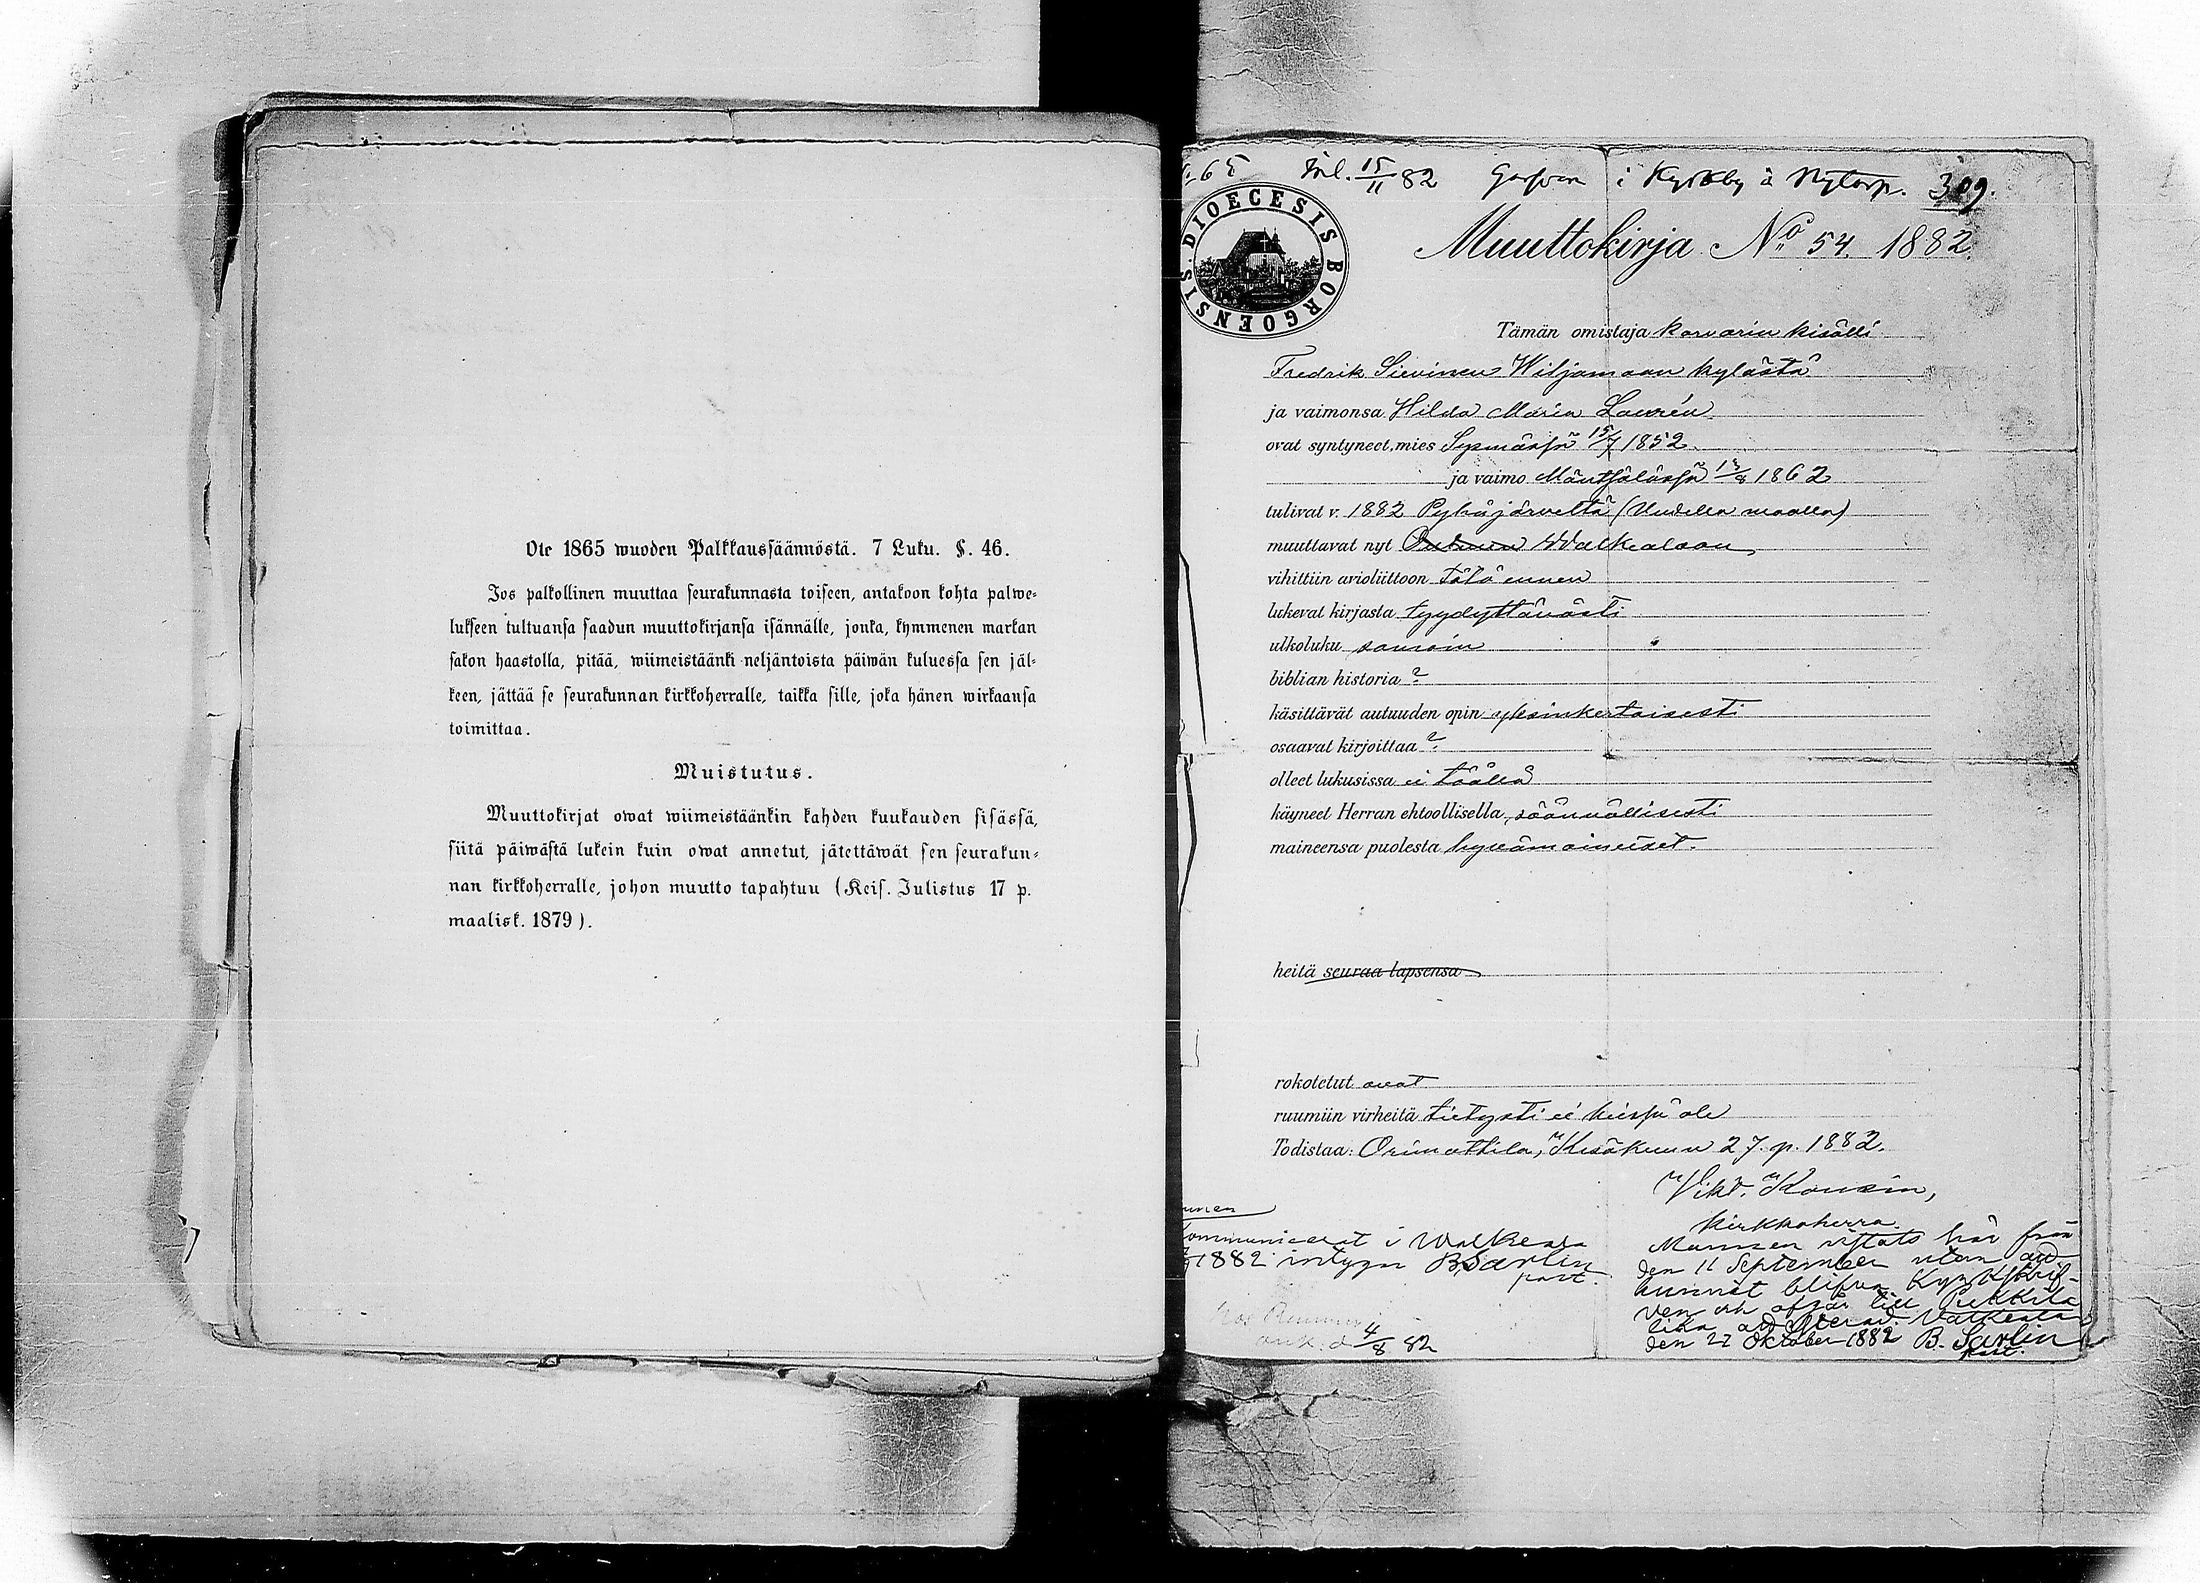 Ote 1865 wuoden Palkkaussäännöstä. 7 Luku. §. 46.
Jos palkollinen muuttaa seurakunnasta toiseen, antakoon kohta palwe-
lukseen tultuansa saadun muuttokirjansa isännälle, jonka, kymmenen markan
sakon haastolla, pitää, wiimeistäänki neljäntoista päiwän kuluessa sen jäl-
keen, jättää se seurakunnan kirkkoherralle, taikka sille, joka hänen wirkaansa
toimittaa.
Muistutus.
Muuttokirjat owat wiimeistäänkin kahden kuukauden sisässä,
siitä päiwästä lukein kuin owat annetut, jätettäwät sen seurakun-
nan kirkkoherralle, johon muutto tapahtuu (Keis. Julistus 17 p.
maalisk. 1879).
65 Inl. 15/11 82 i Kyrkby å Nytorp. 309.
DIOECESIS BORGOENSIS.
Muuttokirja No 54. 1882.
Tämän omistaja karvarin kisälli
Fredrik Sievinen Wiljamaan kylästä
ja vaimonsa Hilda Maria Laurén
ovat syntyneet, mies Sysmässä 15/7 1852
ja vaimo Mäntsälässä 13/8 1862
tulivat v. 1882 Pyhäjärveltä (Uudella maalla)
muuttavat nyt Walkealaan
vihittiin avioliittoon tätä ennen
lukevat kirjasta tyydyttävästi
ulkoluku samoin
biblian historia ?
käsittävät autuuden opin yksinkertaisesti
osaavat kirjoittaa ?
olleet lukusissa ei täällä
käyneet Herran ehtoollisella säännöllisesti
maineensa puolesta hyvämaineiset.
heitä seuraa lapsensa
rokotetut ovat
ruumiin virheitä tietysti ei heissä ole
Todistaa: Orimattila, Kesäkuun 27 p. 1882.
Vikt. Kousin,
kirkkoherra.
Kommunicerat i Walkeala
1882 intygar B. Sarlin
past.
ank. d 4/8 82
Mannen vistats här från
den 11 September utan att
hunnit blifva kyrkskrif-
ven och afgår till Pukkila
lika att återvid. Valkeala
den 22 Oktober 1882 B. Sarlin
past.